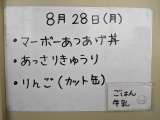 8月28日(月)
・マーボーあつあげ丼
・あっさりきゅうり
・りんご(カット缶)
ごはん
牛乳